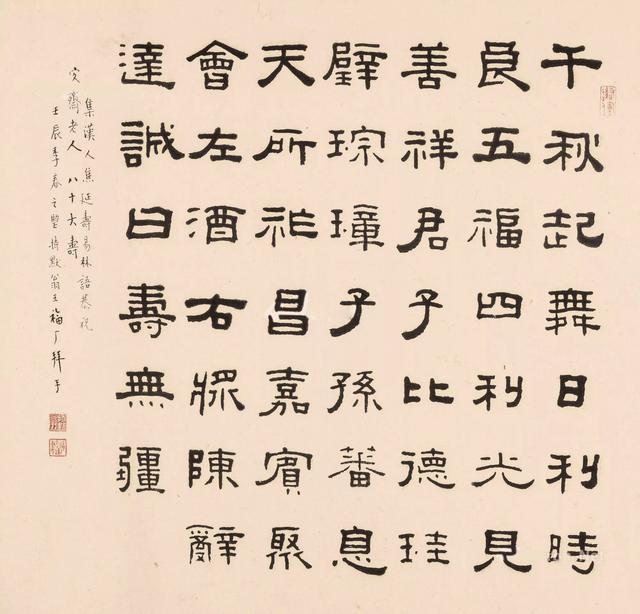 千秋起舞日利時
良五福四利光見
善祥君子比德珪
璧琮璋子孫蕃息
天所祚昌嘉賓聚
會左酒右漿陳辭
達誠曰壽無疆
集漢人焦延壽易林語恭祝
齋老人 八十大壽
壬辰季春之 持默翁王福厂拜手